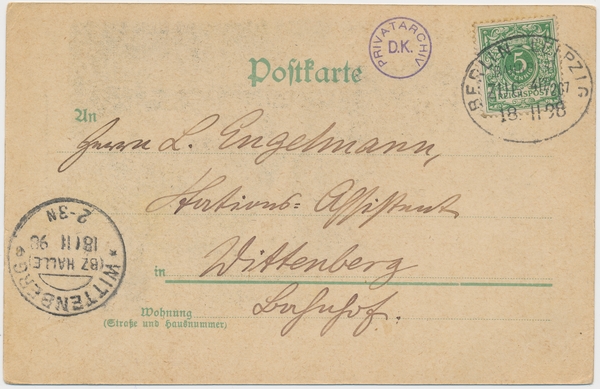 PRIVATARCHIV
D.K.
Postkarte
5
PFENNIG
REICHSPOST
BERLIN LEIPZIG
ZUG
18 11 98
An
Herrn L. Engelmann,
Stations-Assistent
in Wittenberg
Bahnhof.
Wohnung
(Straße und Hausnummer)
WITTENBERG
(BZ HALLE)
18 11 98
2-3N